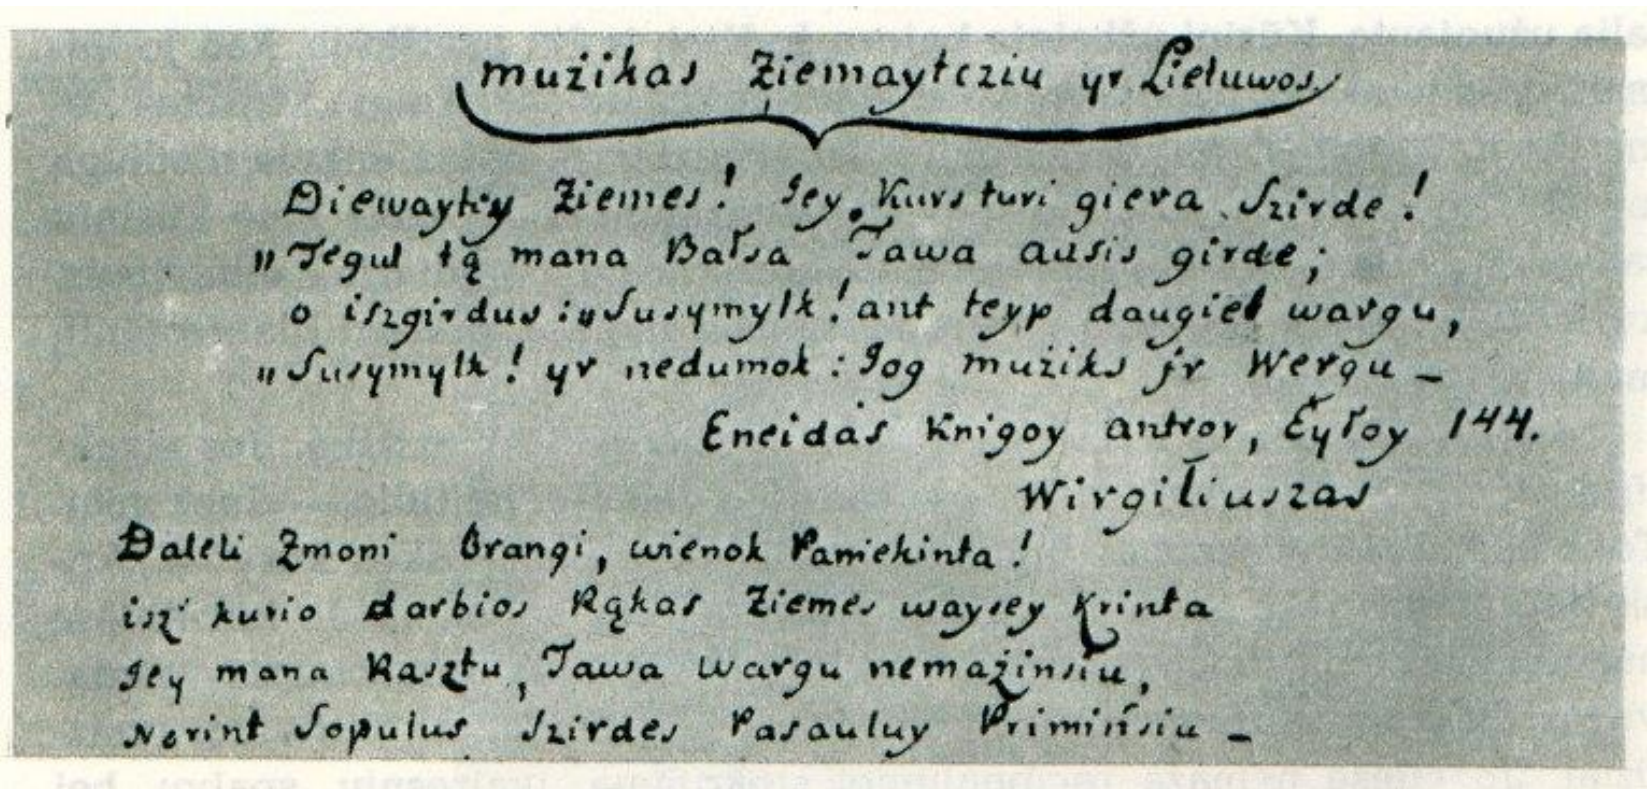 mużikas Ziemaytcziu yr Lietuwos
Diewaytey Ziemes! Jey, Kurs turi giera Szirde!
„Tegul tą mana Bałsa Tawa ausis girde;
o iszgirdus: „Susymylk! ant teyp daugiel wargu,
„Susymylk! yr nedumok: Jog mużiks jr Wergu –
Eneidas Knigoy antroy, Eyłoy 144.
Wirgiliuszas
Daleli Żmoni Brangi, wienok Paniekinta!
isz kurio darbios Rąkas Ziemes waysey Krinta
Jey mana Rasztu, Tawa Wargu nemażinsiu,
Norint Sopulus Szirdes Pasauluy Primińsiu –